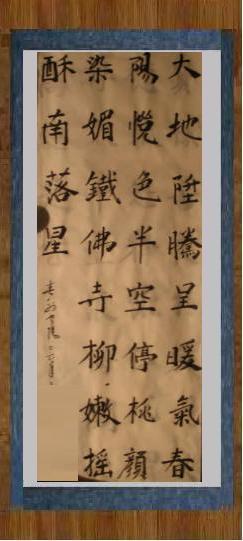 大地陞騰呈暖氣春
陽悅色半空停桃顏
染媚鐵佛寺柳嫩搖
酥南落星